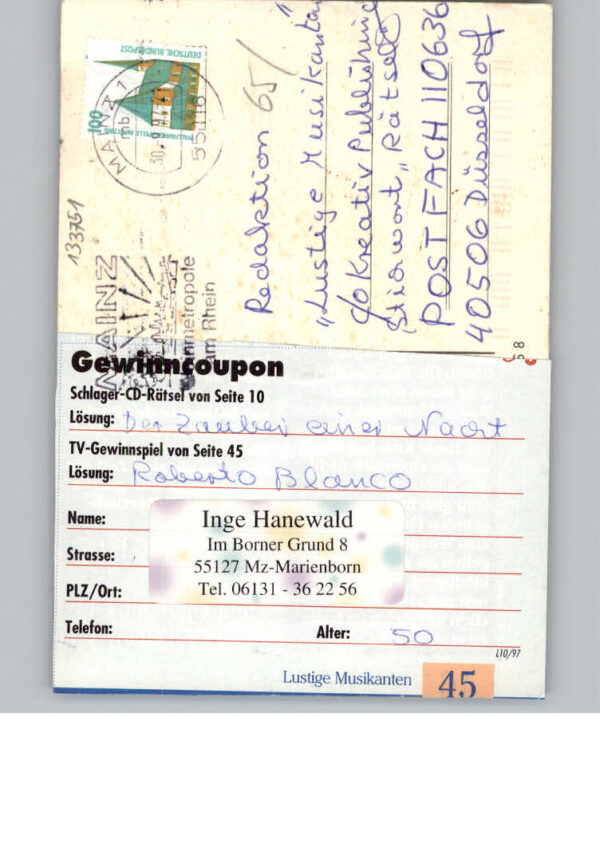 DEUTSCHE BUNDESPOST
100
MAINZ 1
mb
30.
55118
133751
MAINZ
metropole
am Rhein
Redaktion 65/
„Lustige Musikanten"
c/o Kreativ Publishing
Stichwort „Rätsel"
POSTFACH 110636
40506 Düsseldorf
58
Gewinncoupon
Schlager-CD-Rätsel von Seite 10
Lösung: Der Zauber einer Nacht
TV-Gewinnspiel von Seite 45
Lösung: Roberto Blanco
Name:
Inge Hanewald
Strasse:
Im Borner Grund 8
55127 Mz-Marienborn
PLZ/Ort:
Tel. 06131 - 36 22 56
Telefon:
Alter: 50
L10/97
Lustige Musikanten 45